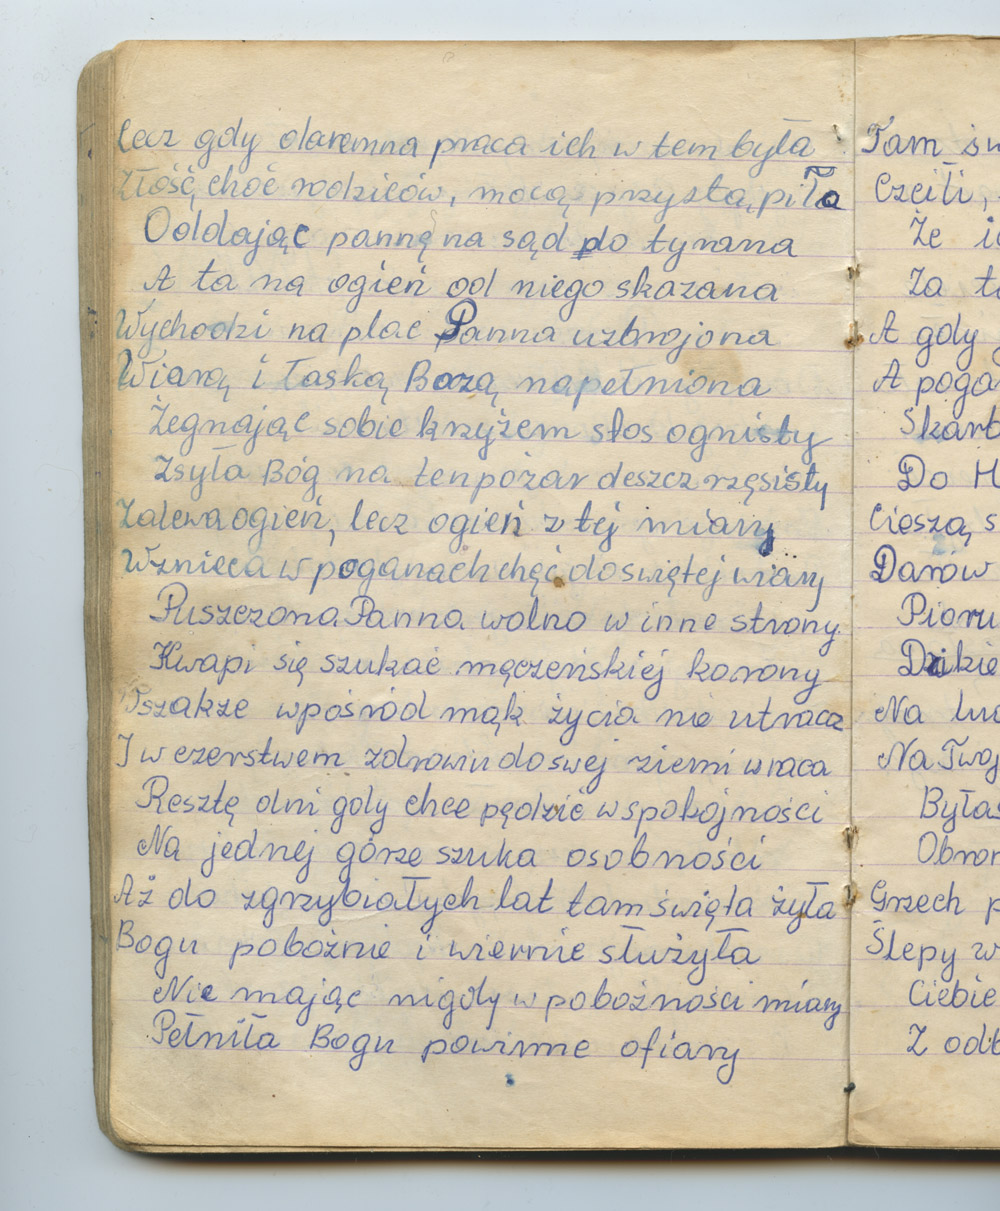 Lecz gdy daremna praca ich w tem była
Złość, choć rodziców, mocą przystą,piła
Oddając pannę na sąd do tyrana
A ta na ogień od niego skazana
Wychodzi na plac Panna uzbrojona
Wiarą i łaską Bozą napełniona
Żegnając sobie krzyżem stos ognisty
Zsyła Bóg na ten pożar deszcz rzęsisty
Zalewa ogień, lecz ogień z tej miary
Wznieca w poganach chęć do świętej wiary
Puszczona Panna wolno w inne strony
Kwapi się szukać męczeńskiej korony
Wszakze wpośród mąk życia nie utraca
I w czerstwem zdrowiu do swej ziemi wraca
Resztę dni gdy chce pędzić w spokojności
Na jednej górze szuka osobności
Aż do zgrzybiałych lat tam święta żyła
Bogu pobożnie i wiernie służyła
Nie mając nigdy w pobożności miary
Pełniła Bogu powinne ofiary
Tam św
Czcili,
Że i
Za t
A gdy
A poga
Skarb
Do H
Cieszą s
Darow
Pioru
Dzikie
Na lud
Na Twoj
Byłaś
Obron
Grzech p
Ślepy w
Ciebie
Z odb